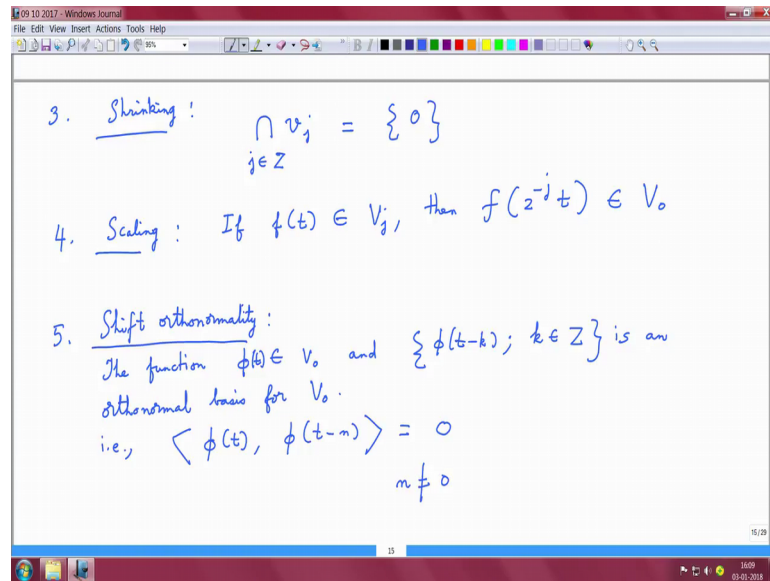 09 10 2017 - Windows Journal
File Edit View Insert Actions Tools Help
95%
B I
3. Shrinking :
∩ v_j = { 0 }
j ∈ Z
4. Scaling : If f(t) ∈ V_j, then f(2^{-j} t) ∈ V_0
5. Shift orthonormality :
The function ϕ(t) ∈ V_0 and { ϕ(t-k) ; k ∈ Z } is an
orthonormal basis for V_0.
i.e., ⟨ ϕ(t), ϕ(t-n) ⟩ = 0
n ≠ 0
15/29
15
16:09
03-01-2018